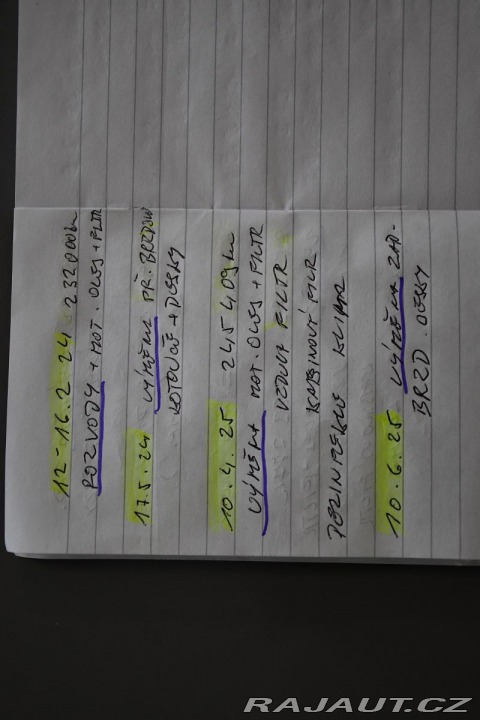 12-16.2 24 232000km
ROZVODY + MOT. OLEJ + FILTR
17.5.24 VÝMĚNA PŘ. BRZDOV
KOTOUČE + DESKY
10.4.25 245409km
VÝMĚNA MOT. OLEJ + FILTR
VZDUCH FILTR
KABINOVÝ FILTR
DEZINFEKCE KLIMA
10.6.25 VÝMĚNA ZAD.
BRZD. DESKY
RAJAUT.CZ